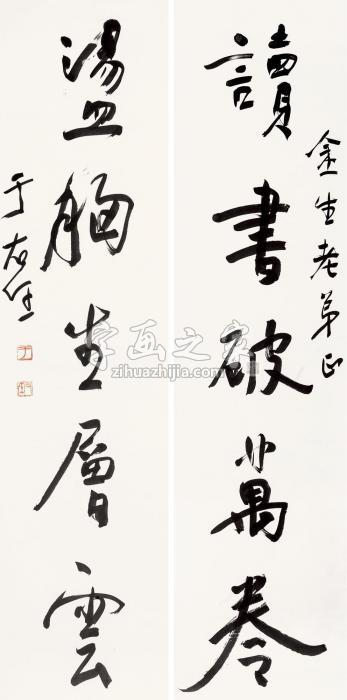 金生老弟正
讀書破萬卷
盪胸生層雲
于右任
字画之家
zihuazhijia.com